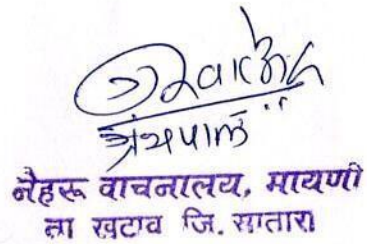 ग्रंथपाल
नेहरू वाचनालय, मायणी
ता खटाव जि. सातारा